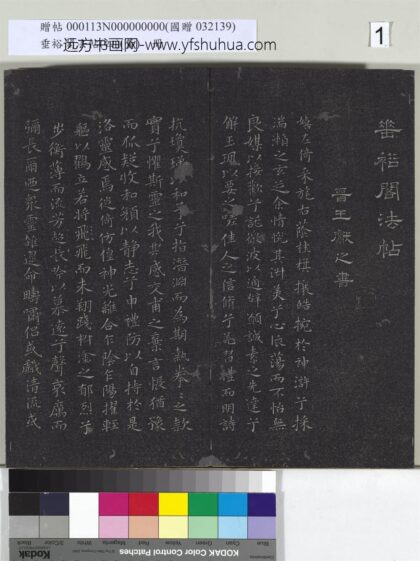 贈帖 000113N000000000(國贈 032139)
垂裕
冊
远方书画网- www.yfshuhua.com
1
垂裕閣法帖
晉王獻之書
嬉左倚采旄右蔭桂旗攘皓捥於神滸兮採
湍瀨之玄芝余情悅其淑美兮心振蕩而不怡無
良媒以接歡兮託微波以通辭願誠素之先達兮
解玉珮以要之嗟佳人之信脩兮羌習禮而明詩
抗瓊珶以和予兮指潛淵而為期執拳〻之款
實兮懼斯靈之我欺感交甫之棄言悵猶豫
而狐疑收和顏以靜志兮申禮防以自持於是
洛靈感焉徙倚仿偟神光離合乍陰乍陽擢輕
軀以鶴立若將飛而未翔踐椒塗之郁烈兮
步衡薄而流芳超長吟以慕遠兮聲哀厲而
彌長爾迺衆靈雜遝命疇嘯侶或戲清流或
Blue
Cyan
Green
Yellow
Red
Magenta
White
3/Color
Black
KODAK Color Control Patches